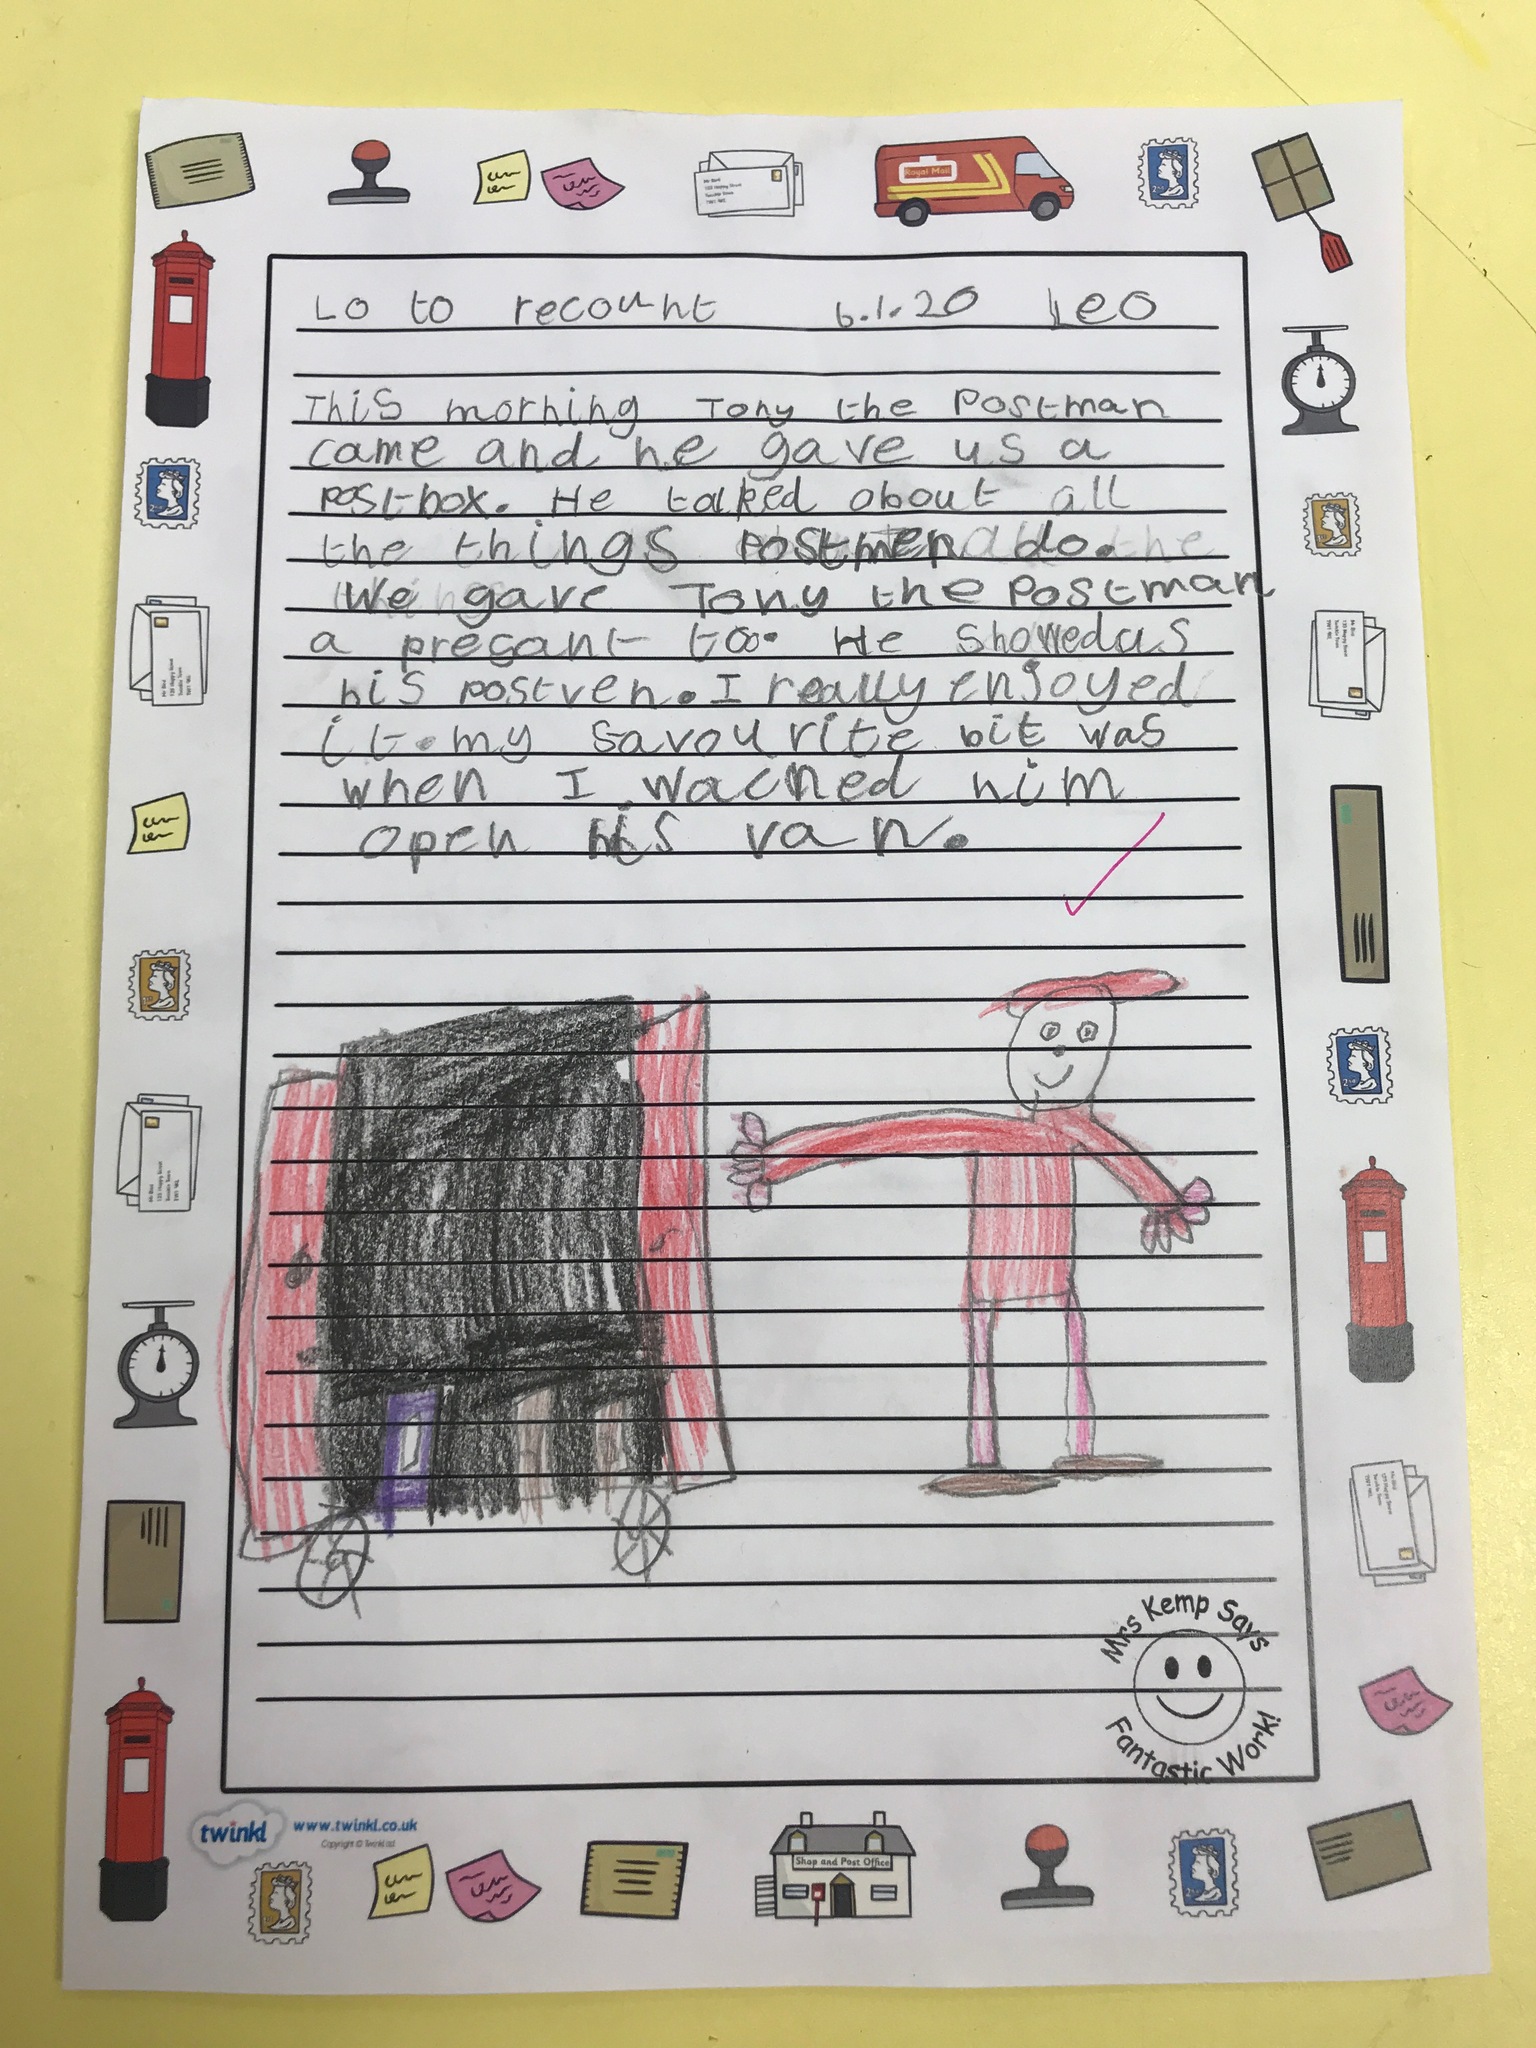 Royal Mail
LO to recount 6.1.20 Leo
This morning Tony the Postman
came and he gave us a
postbox. He talked about all
the things postmen do.
We gave Tony the Postman
a presant too. He showed us
his postven. I really enjoyed
it. my favourite bit was
when I wached him
open his van.
Mrs Kemp Says
Fantastic Work!
twinkl www.twinkl.co.uk
Copyright © Twinkl Ltd
Shop and Post Office